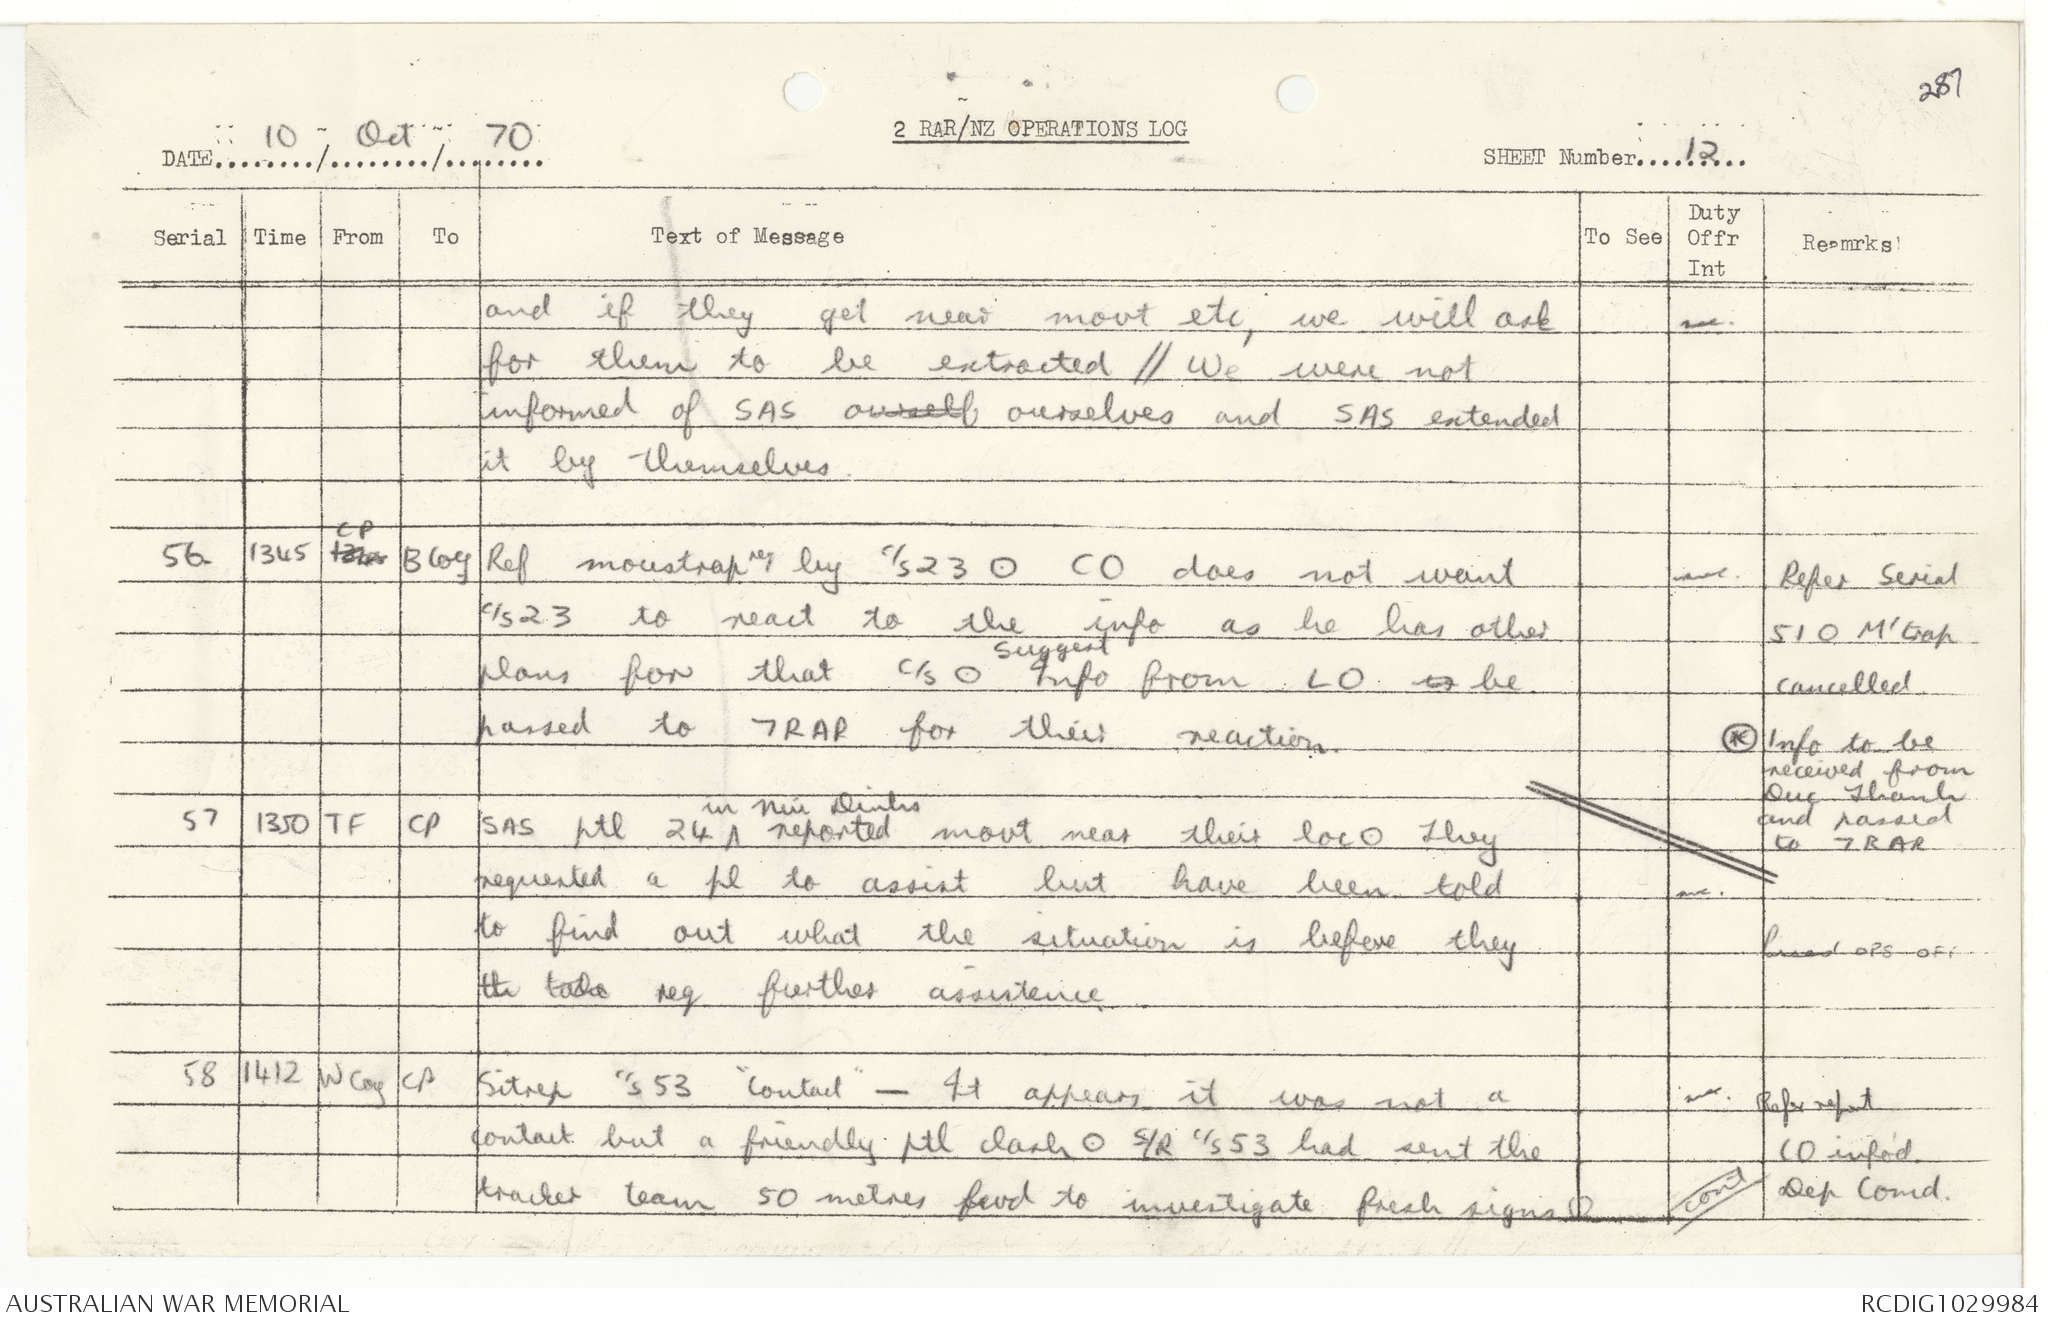 287
DATE 10 / Oct / 70
2 RAR/NZ OPERATIONS LOG
SHEET Number 12
Serial Time From To Text of Message To See Duty Offr Int Remrks
and if they get near movt etc, we will ask
for them to be extracted // We were not
informed of SAS ourself ourselves and SAS extended
it by themselves.
56 1345 CP B Coy Ref moustrap req by c/s 23 O CO does not want Refer Serial
c/s 23 to react to the info as he has other 51 O M'trap
plans for that c/s O Suggest Info from LO to be cancelled
passed to 7RAR for their reaction. Info to be
received from
Duc Thanh
and passed
to 7 RAR
57 1350 TF CP SAS ptl 24 in Nui Dinhs reported movt near their loc O They
requested a pl to assist but have been told
to find out what the situation is before they OPS OFF
th take req further assistence
58 1412 W Coy CP Sitrep c/s 53 "Contact" — It appears it was not a Refer report
contact but a friendly ptl clash O S/R c/s 53 had sent the CO infod
tracker team 50 metres fwd to investigate fresh signs O cont Dep Comd.
AUSTRALIAN WAR MEMORIAL
RCDIG1029984